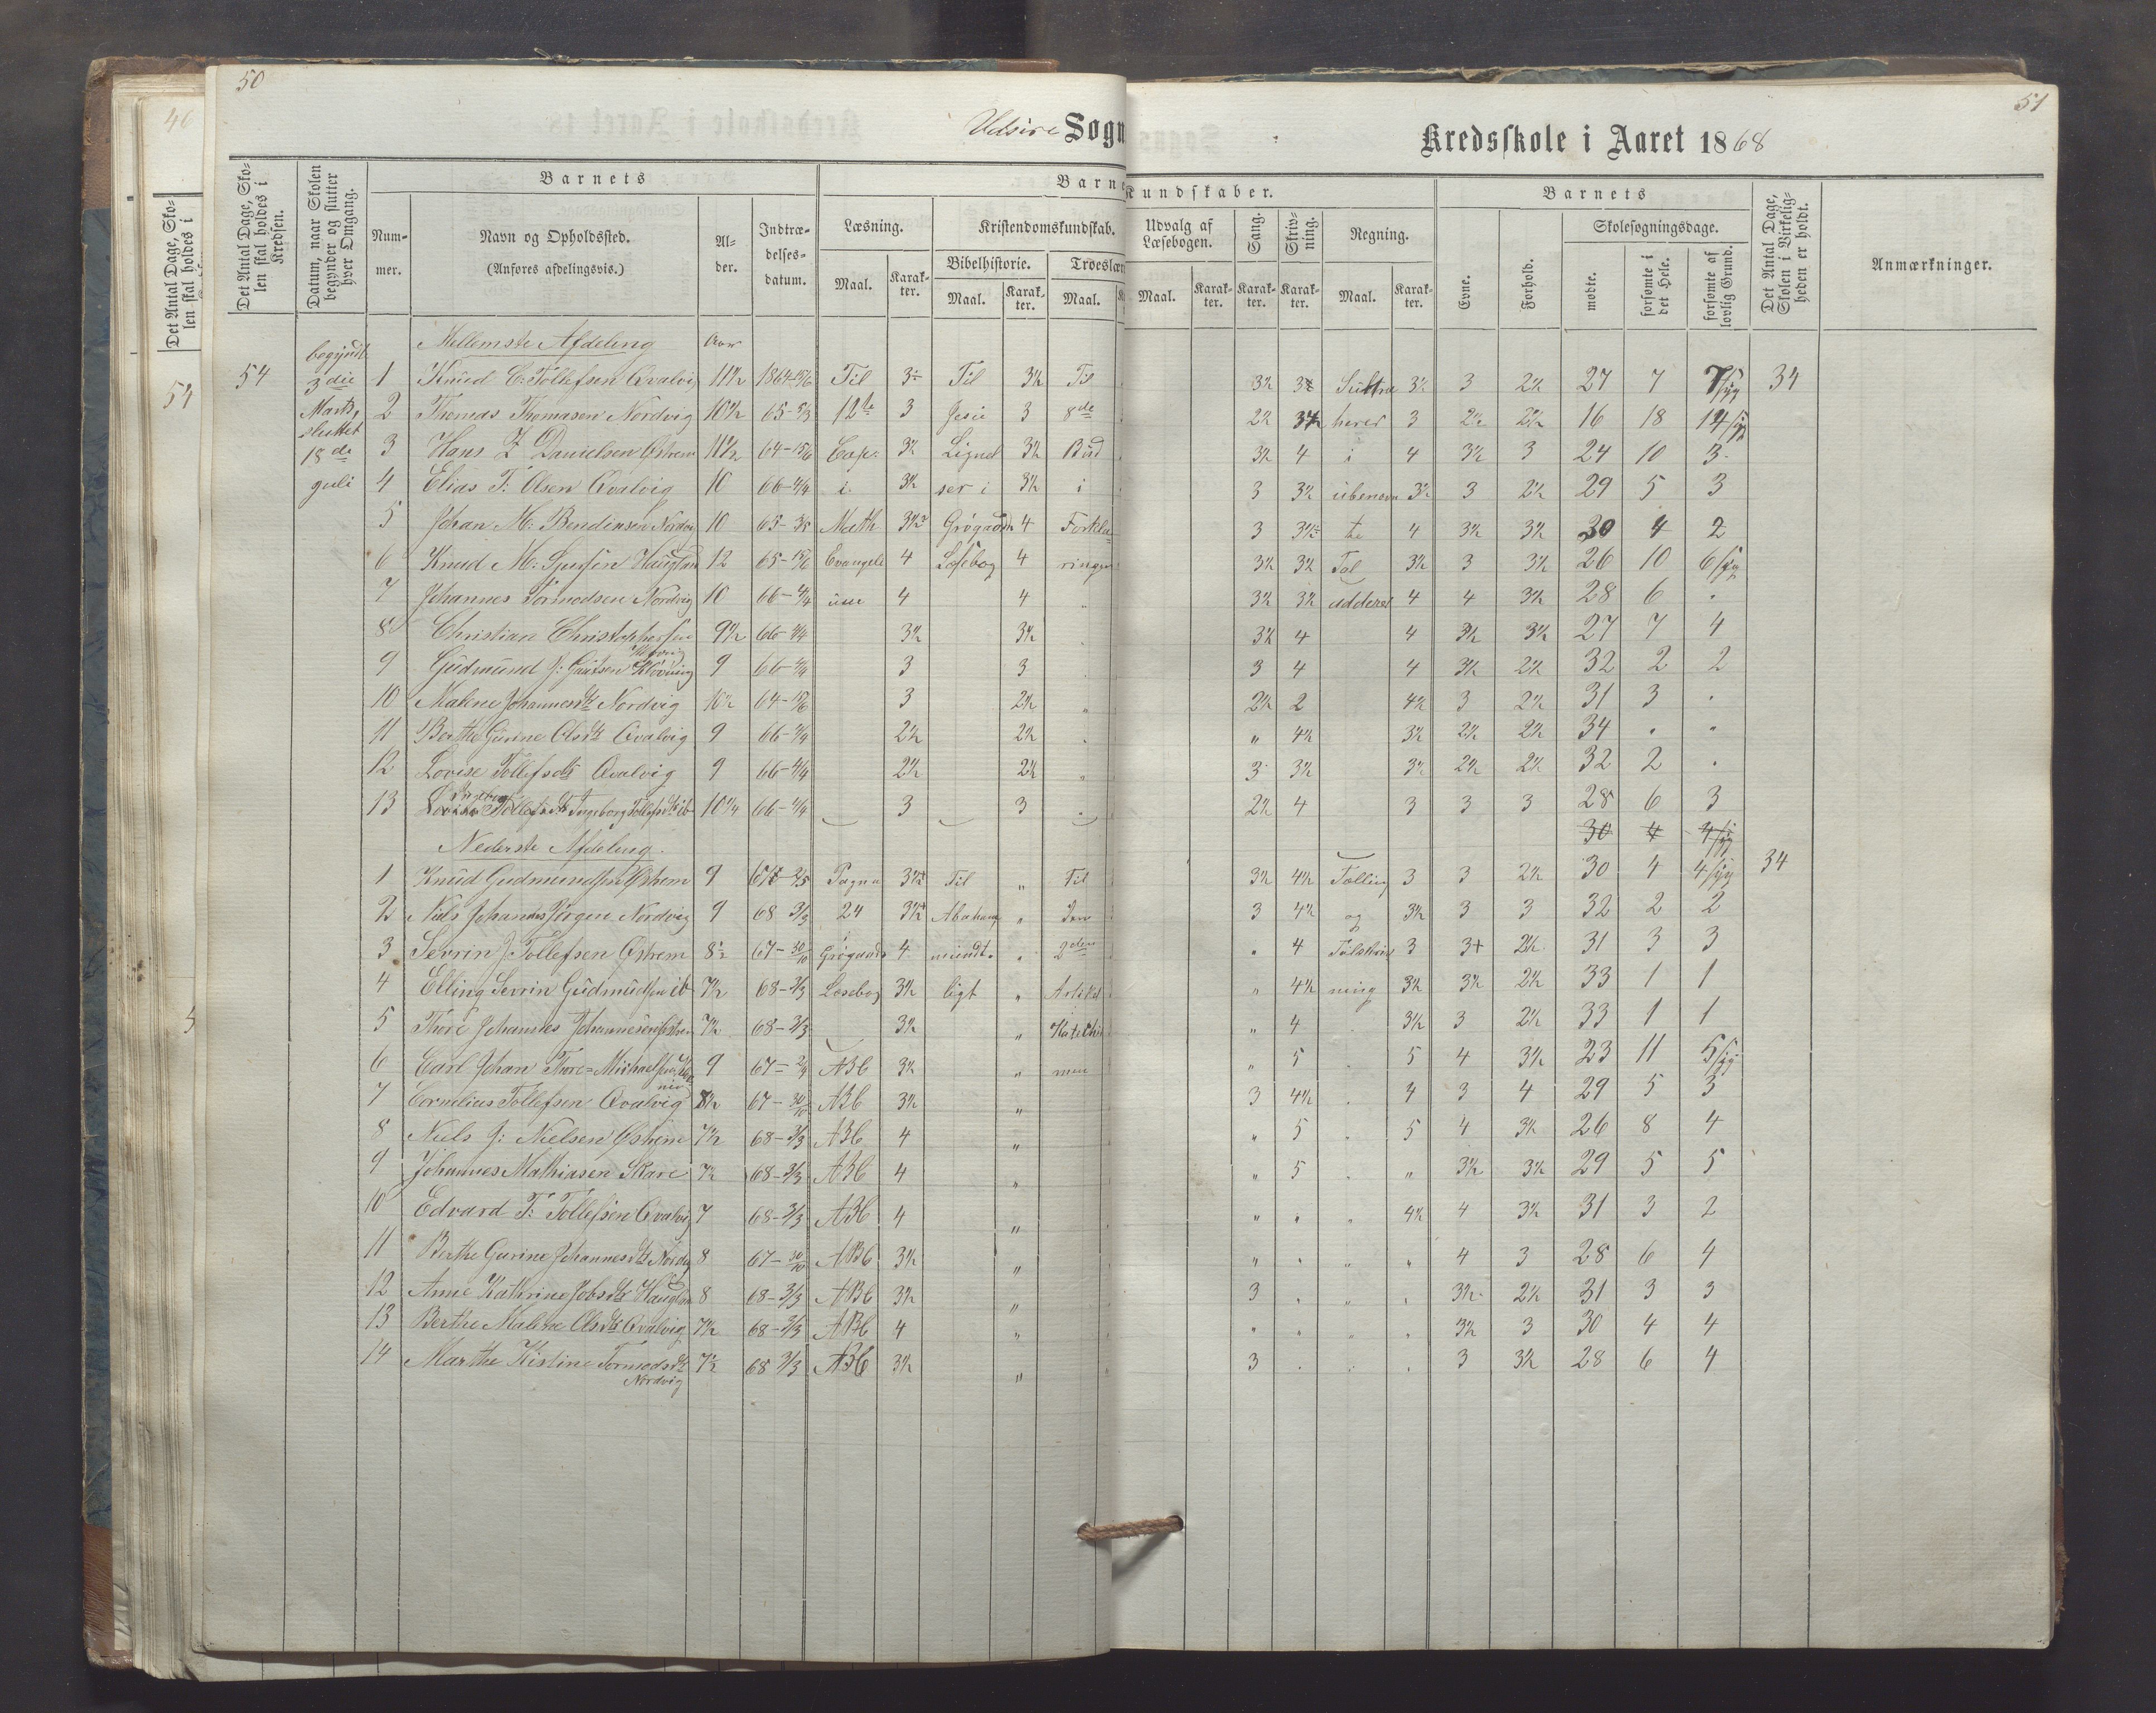 50
51
Udsire Sogn
Kredsskole i Aaret 1868
Det Antal Dage, Skolen skal holdes i Kredsen.
Datum, naar Skolen begynder og slutter hver Omgang.
Barnets
Num-mer.
Navn og Opholdssted.
(Anføres afdelingsvis.)
Al-der.
Indtræ-delses-datum.
Læsning.
Maal.
Karak-ter.
Kristendomskundskab.
Bibelhistorie.
Maal.
Karak-ter.
Troeslær
Maal.
Kundskaber.
Udvalg af Læsebogen.
Maal.
Karak-ter.
Sang.
Karak-ter.
Skriv-ning.
Karak-ter.
Regning.
Maal.
Karak-ter.
Barnets
Evne.
Forhold.
Skolesøgningsdage.
mødte.
forsømte i det Hele.
forsømte af lovlig Grund.
Det Antal Dage, Skolen i Virkelig-heden er holdt.
Anmærkninger.
begyndte 3die Marts, sluttet 18de Juli
Mellemste Afdeling Aar
54 1 Knud C. Tollefsen Qvalvig 11½ 1864-15/6 Til Til 3½ Til 3½ 3 2½ 27 7 7 syg 34
2 Thomas Thomasen Nordvig 10½ 65- 12te 3 Jesu 3 8de 2½ 3 2½ 16 18 14 syg
3 Hans Z Danielsen Østrem 11½ 64-15/6 Cap. 3½ Lignel 3½ Bud 3½ 4 i 4 3½ 3 24 10 3
4 Elias T. Olsen Qvalvig 10 66-4/4 i 3½ ser i 3½ i 3 3½ ubenævn 3½ 3 2½ 29 5 3
5 Johan M. Nordv 10 65- Math 4 Forkla 3 te 4 3½ 3½ 30 4 2
6 Knud M. Haugland 12 65-15/6 Evangeli 4 Læsebog 4 ringen 3½ 3½ Tal 3½ 3 3½ 26 10 6 syg
7 Johannes Tormodsen Nordvig 10 66-4/4 um 4 4 3½ 3½ adderes 4 4 3½ 28 6
8 Christian Christophersen 9½ 66-4/4 3½ 3½ 3½ 4 4 3½ 3½ 27 7 4
9 Gudmund J. 9 66-4/4 3 3 3 4 4 3½ 2½ 32 2 2
10 Malene Johannesdtr Nordvig 10½ 64-15/6 3 2½ 2½ 2 4½ 3 2½ 31 3
11 Berthe Gurine Olsdtr Qvalvig 9 66-4/4 2½ 2½ " 4½ 3½ 2½ 2½ 34
12 Lovise Tollefsdtr Qvalvig 9 66-4/4 2½ 2½ 3 3½ 3½ 2½ 2½ 32 2
13 Ingeborg Tollefsdtr ib 10¼ 66-4/4 3 3 2½ 4 3 3 3 28 6 3
30 4 4 syg
Nederste Afdeling.
1 Knud Gudmundsen Østrem 9 Pagna Til " Til 3½ 4½ Tælling 3 3 2½ 30 4 4 syg 34
2 Niels Johannes Jørgen Nordvig 9 68 3/3 24 Abraham " den 3 4½ og 3½ 3 3 32 2 2
3 Sevrin J. Tollefsen Østrem 8½ 67-30/10 Grøgaards 4 mundt 2den 4 Talskriv 3 3+ 2½ 31 3 3
4 Elling Sevrin Gudmundsen ib 7½ 68-3/3 Læsebog 3½ ligt " Artikel " 4½ ning 3½ 3½ 2½ 33 1 1
5 Thore Johannes Johannesen Østrem 7½ 68-3/3 3½ " Katechis " 4 3½ 3 2½ 33 1 1
6 Carl Johan Thore Michaelsen 9 67- ABC 3½ " men " 5 5 4 3½ 23 11 5 syg
7 Cornelius Tollefsen Qvalvig 8½ 67-30/10 ABC 3½ " 3 4½ 4 3 4 29 5 3
8 Niels J. Nielsen Østrem 7½ 68-3/3 ABC 4 " " 5 5 4 3½ 26 8 4
9 Johannes Mathiasen Skare 7½ 68-3/3 ABC 4 " " 5 " 3½ 3½ 29 5 5
10 Edvard T. Tollefsen Qvalvig 7 68-3/3 ABC 4 " " " 4½ 4 3½ 31 3 2
11 Berthe Gurine Johannesdtr Nordvig 8 67-30/10 ABC 3½ " " " 4 3 28 6 4
12 Anne Kathrine Jobsdtr Haugland 8 68-3/3 ABC 3½ " 3 " 3½ 2½ 31 3 3
13 Berthe Malene Olsdtr Qvalvig 7½ 68-3/3 ABC 4 " " " 3½ 3 30 4 4
14 Marthe Kistine Tormodsdtr Nordvig 7½ 68 3/3 ABC 3½ " 3 3 3½ 28 6 4